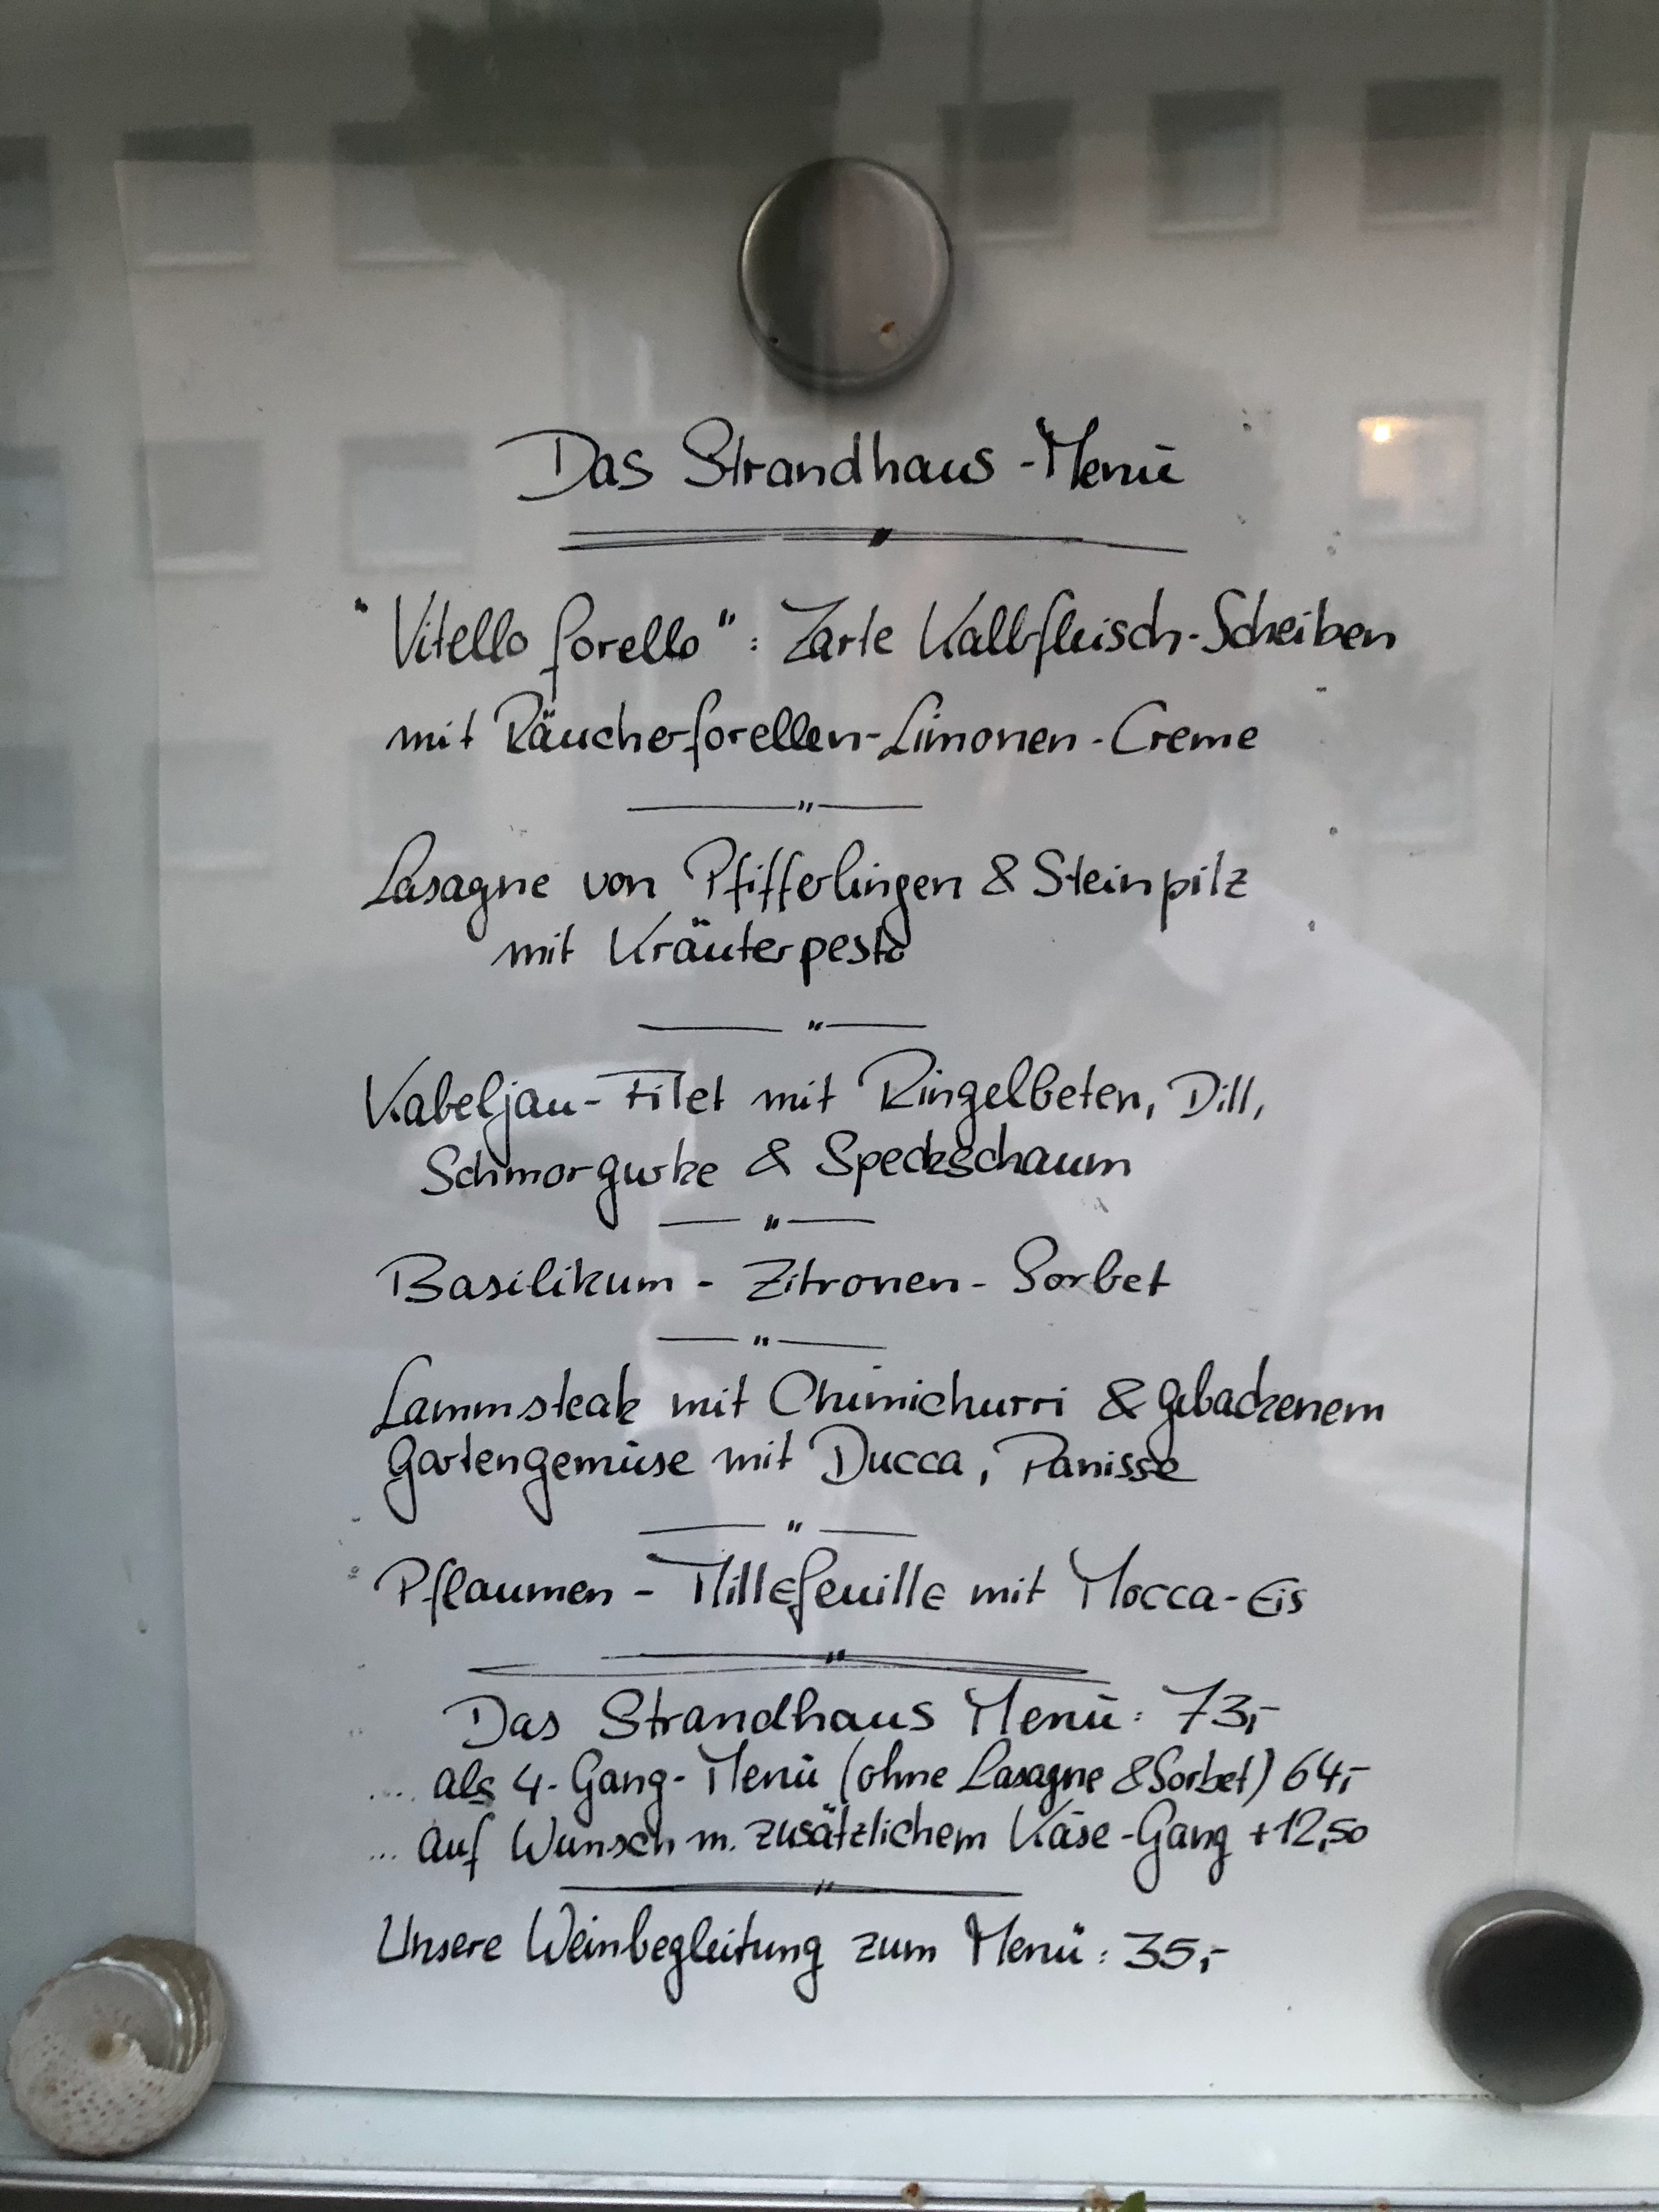 Das Strandhaus-Menü
"Vitello forello": Zarte Kalbfleisch-Scheiben
mit Räucherforellen-Limonen-Creme
Lasagne von Pfifferlingen & Steinpilz
mit Kräuterpesto
Kabeljau-Filet mit Ringelbeten, Dill,
Schmorgurke & Speckschaum
Basilikum-Zitronen-Sorbet
Lammsteak mit Chimichurri & gebackenem
Gartengemüse mit Ducca, Panisse
Pflaumen-Millefeuille mit Mocca-Eis
Das Strandhaus Menü: 73,-
.... als 4-Gang-Menü (ohne Lasagne & Sorbet) 64,-
... auf Wunsch m. zusätzlichem Käse-Gang +12,50
Unsere Weinbegleitung zum Menü: 35,-